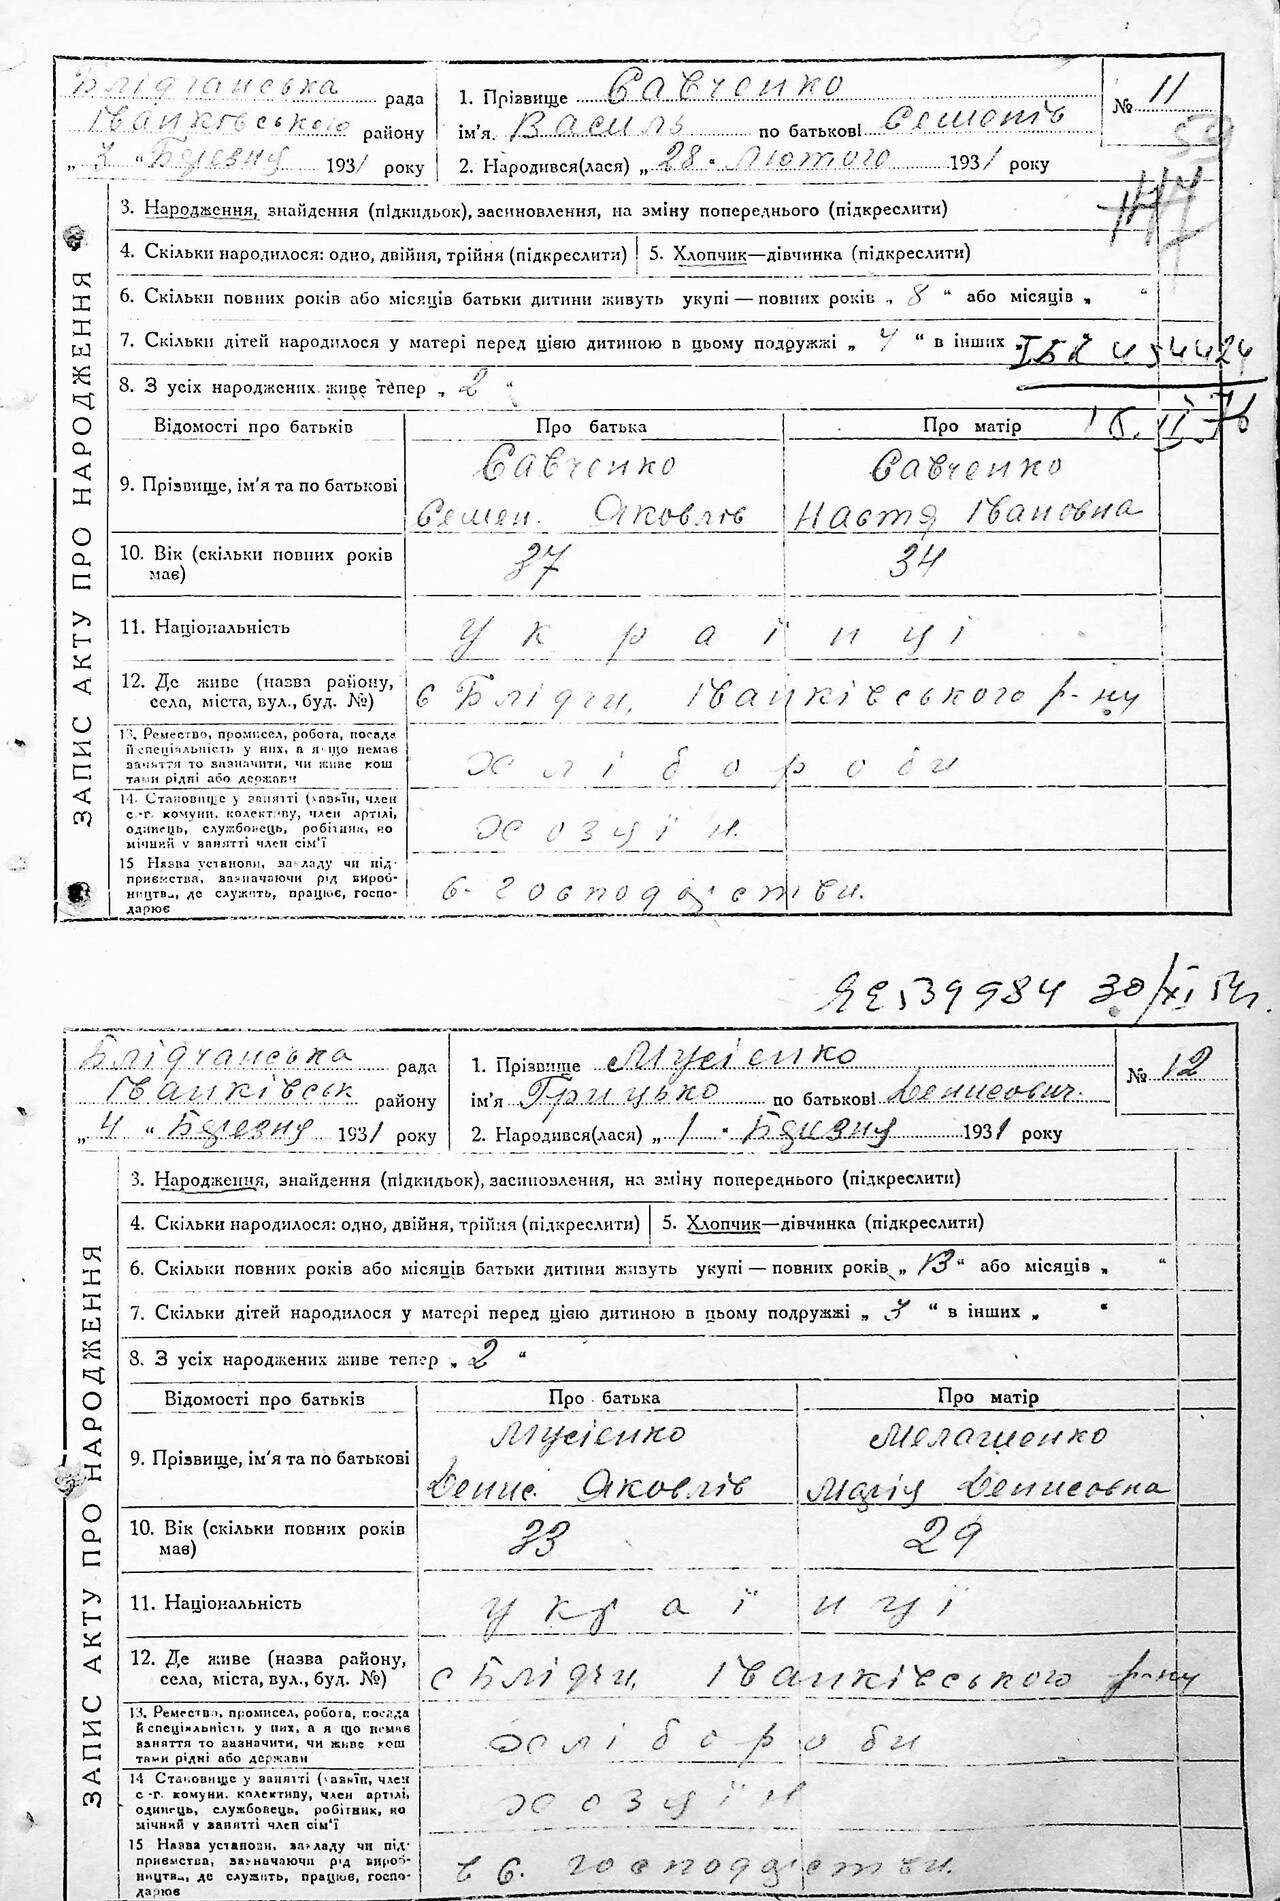 Блідчанська рада
Іванківського району
„ 3 “ Березня 1931 року
1. Прізвище Савченко
ім'я Василь по батькові Семенів
2. Народився(лася) „ 28 “ Лютого 1931 року
№ 11
59
147
ЗАПИС АКТУ ПРО НАРОДЖЕННЯ
3. Народження, знайдення (підкидьок), засиновлення, на зміну попереднього (підкреслити)
4. Скільки народилося: одно, двійня, трійня (підкреслити) 5. Хлопчик—дівчинка (підкреслити)
6. Скільки повних років або місяців батьки дитини живуть укупі — повних років „ 8 “ або місяців „ “
7. Скільки дітей народилося у матері перед цією дитиною в цьому подружжі „ 4 “ в інших „
454424
8. З усіх народжених живе тепер „ 2 “
Відомості про батьків Про батька Про матір
9. Прізвище, ім'я та по батькові
Савченко Савченко
Семен Яковлів Настя Івановна
10. Вік (скільки повних років має) 37 34
11. Національність українці
12. Де живе (назва району, села, міста, вул., буд. №) с Блідчи, Іванківського р-ну
13. Ремество, промисел, робота, посада й спеціальність у них, а якщо немає заняття то зазначити, чи живе коштами рідні або держави хлібороби
14. Становище у занятті (хазяїн, член с.-г. комуни, колективу, член артілі, одинець, службовець, робітник, помічний у занятті член сім'ї хозяїн.
15 Назва установи, закладу чи підприємства, зазначаючи рід виробництва, де служить, працює, господарює в господарстви.
539984 30/XI 54г.
Блідчанська рада
Іванківськ району
„ 4 “ Березня 1931 року
1. Прізвище Мусієнко
ім'я Грицько по батькові Денисович.
2. Народився(лася) „ 1 “ Березня 1931 року
№ 12
ЗАПИС АКТУ ПРО НАРОДЖЕННЯ
3. Народження, знайдення (підкидьок), засиновлення, на зміну попереднього (підкреслити)
4. Скільки народилося: одно, двійня, трійня (підкреслити) 5. Хлопчик—дівчинка (підкреслити)
6. Скільки повних років або місяців батьки дитини живуть укупі — повних років „ 13 “ або місяців „ “
7. Скільки дітей народилося у матері перед цією дитиною в цьому подружжі „ 3 “ в інших „ “
8. З усіх народжених живе тепер „ 2 “
Відомості про батьків Про батька Про матір
9. Прізвище, ім'я та по батькові
Мусієнко Мелашенко
Денис Яковлів Марія Денисовна
10. Вік (скільки повних років має) 33 29
11. Національність українці
12. Де живе (назва району, села, міста, вул., буд. №) с Блідчи, Іванківського р-ну
13. Ремество, промисел, робота, посада й спеціальність у них, а якщо немає заняття то зазначити, чи живе коштами рідні або держави хлібороби
14 Становище у занятті (хазяїн, член с.-г. комуни, колективу, член артілі, одинець, службовець, робітник, помічний у занятті член сім'ї хозяїн
15 Назва установи, закладу чи підприємства, зазначаючи рід виробництва, де служить, працює, господарює в с. господарстви.